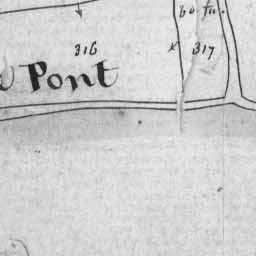 bo fu.
316
317
Pont